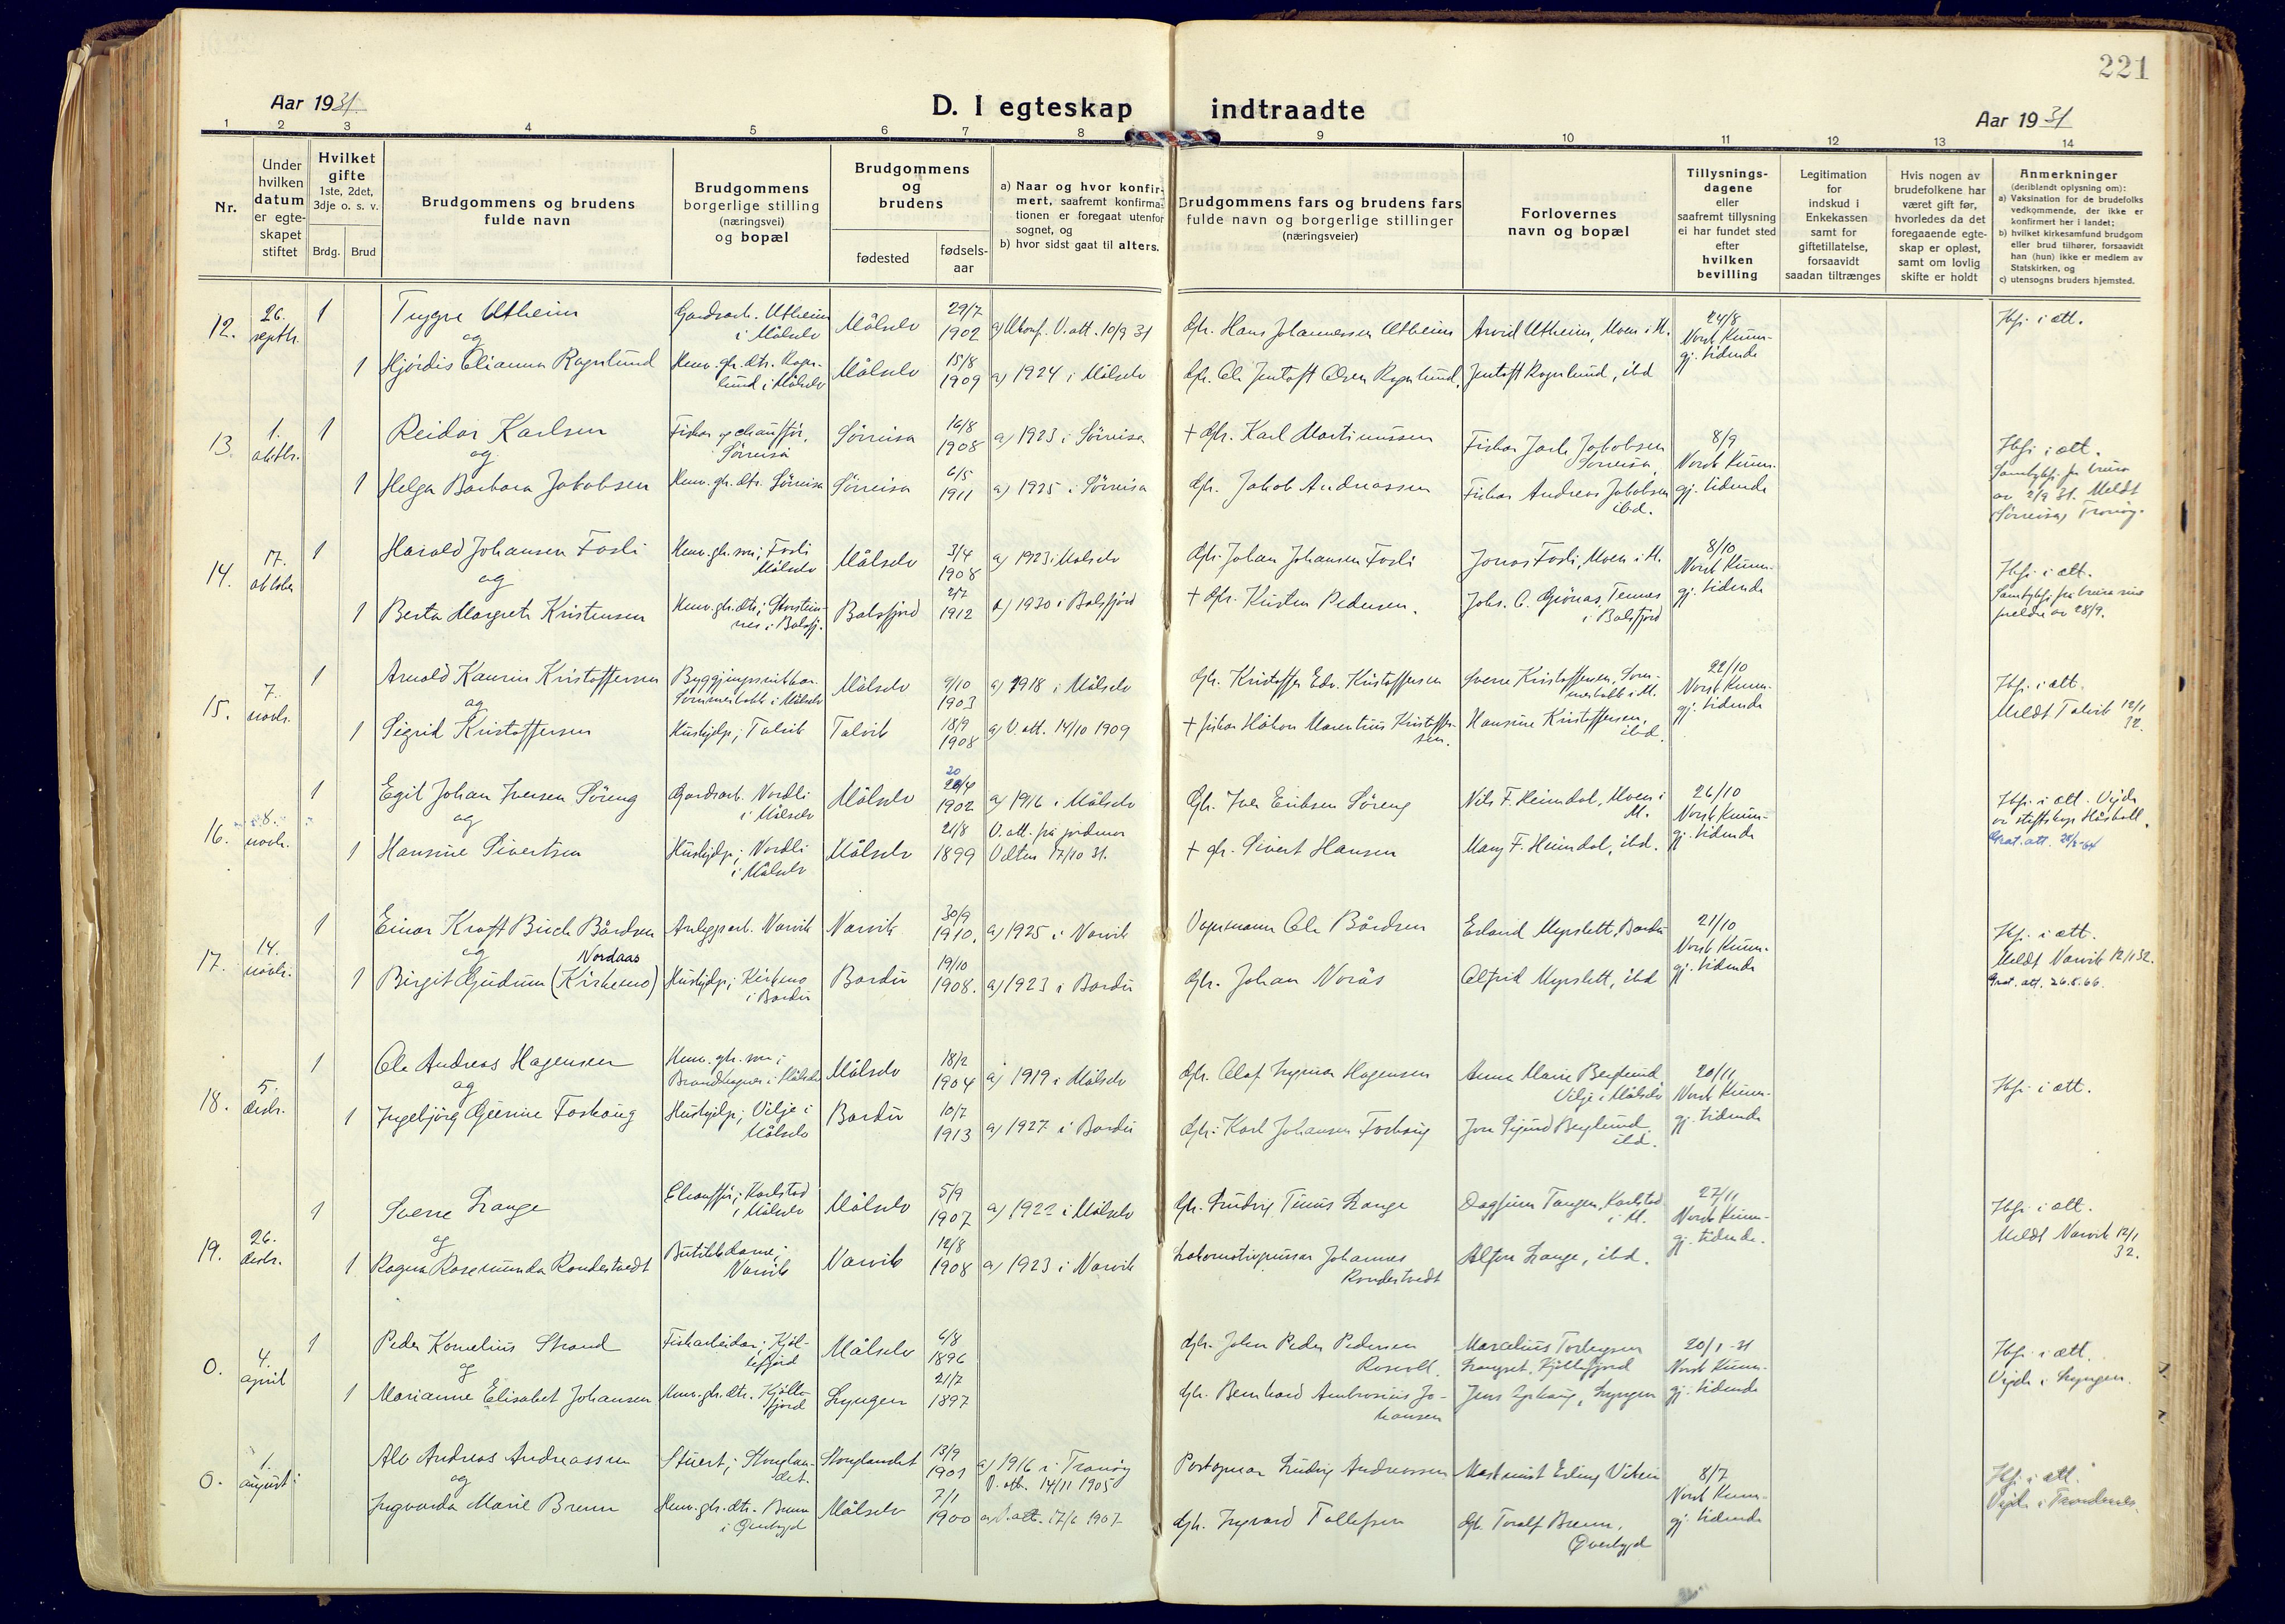 221
Aar 1931.
D. I egteskap indtraadte
Aar 1931
1 2 3 4 5 6 7 8 9 10 11 12 13 14
Nr.
Under
hvilken
datum
er egte-
skapet
stiftet
Hvilket
gifte
1ste, 2det,
3dje o. s. v.
Brdg. Brud
Brudgommens og brudens
fulde navn
Brudgommens
borgerlige stilling
(næringsvei)
og bopæl
Brudgommens
og
brudens
fødested
fødsels-
aar
a) Naar og hvor konfir-
mert, saafremt konfirma-
tionen er foregaat utenfor
sognet, og
b) hvor sidst gaat til alters.
Brudgommens fars og brudens fars
fulde navn og borgerlige stillinger
(næringsveier)
Forlovernes
navn og bopæl
Tillysnings-
dagene
eller
saafremt tillysning
ei har fundet sted
efter
hvilken
bevilling
Legitimation
for
indskud i
Enkekassen
samt for
giftetillatelse,
forsaavidt
saadan tiltrænges
Hvis nogen av
brudefolkene har
været gift før,
hvorledes da det
foregaaende egte-
skap er opløst,
samt om lovlig
skifte er holdt
Anmerkninger
(deriblandt oplysning om):
a) Vaksination for de brudefolks
vedkommende, der ikke er
konfirmert her i landet;
b) hvilket kirkesamfund brudgom
eller brud tilhører, forsaavidt
han (hun) ikke er medlem av
Statskirken, og
c) utensogns bruders hjemsted.
12. 26. septbr. 1 Trygve Utheim
og
Gardsarb. Utheim
i Målselv
Målselv 29/7
1902
a) Ukonf. V. att. 10/9 31
Gbr. Hans Johannessen Utheim
Arvid Utheim, Moen i M.
24/8
Norsk Kunn-
gj. tidende
1 Hjördis Elianna Rognlund
Hem. gbr. dtr. Rogn-
lund i Målselv
Målselv 15/8
1909
a) 1924 i Målselv
Gbr. Ole Jentoft Olsen Rognlund,
Jentoft Rognlund, ibd
13. 1. oktbr. 1 Reidar Karlsen
og
Fisker og chauffør,
Sörreisa
Sörreisa 16/8
1908
a) 1923 i Sörreisa
+ Gbr. Karl Martinussen
Jakobsen
Sörreisa,
8/9
Norsk Kunn-
gj. tidende
1 Helga Barbara Jakobsen
Hem. gb. dtr. Sörreisa
Sörreisa 6/5
1911
a) 1925 i Sörreisa
Gbr. Jakob Andreassen
Fisker Andreas Jakobsen
ibd.
av 2/9 31. Meldt
Sörreisa, Tranöy.
14. 17. oktober 1 Harald Johansen Fosli
og
Hem. gbr. sön; Fosli
Målselv
Målselv 3/4
1908
a) 1923 i Målselv
Gbr. Johan Johansen Fosli
Jonas Fosli, Moen i M.
8/10
Norsk Kunn-
gj. tidende
1 Berta Margrete Kristensen
Hem. gbr. dtr; Storstein-
nes i Balsfj.
Balsfjord 2/7
1912
a) 1930 i Balsfjord
+ Gbr. Kristen Pedersen.
Johs. C. Grönås, Tennes
i Balsfjord
foreldre av 28/9.
15. 7. novbr. 1 Arnold Kaurin Kristoffersen
og
Målselv 9/10
1903
a) 1918 i Målselv
Gbr. Kristoffer Edv. Kristoffersen
Sverre Kristoffersen,
22/10
Norsk Kunn-
gj. tidende
1 Sigrid Kristoffersen
Hushjelp; Talvik
Talvik 18/9
1908
a) V. att. 14/10 1909
+ fisker Håkon Marentius Kristoffer-
sen.
Hansine Kristoffersen,
ibd.
Meldt Talvik 12/1
32.
16. 8. novbr. 1 Egil Johan Iversen Söreng
og
Gardsarb. Nordli
i Målselv
Målselv 20
1902
a) 1916 i Målselv
Gbr. Iver Eriksen Söreng
Nils F. Heimdal, Moen i
M.
26/10
Norsk Kunn-
gj. tidende
1 Hansine Sivertsen
Hushjelp; Nordli
i Målselv
Målselv 21/8
1899
V. att. frå jordmor
17/10 31.
+ gbr. Sivert Hansen
Mary F. Heimdal, ibd.
17. 14. novbr. 1 Einar Kraft Buch Bårdsen
og
Anleggsarb. Narvik
Narvik 30/9
1910.
a) 1925 i Narvik
Vognmann Ole Bårdsen
Erland Myrslett, Bardu
21/10
Norsk Kunn-
gj. tidende
Nordaas
1 Birgit Gudrun (Kirkemo)
Hushjelp; Kirkemo
i Bardu
Bardu 19/10
1908.
a) 1923 i Bardu
Gbr. Johan Norås
Alfrid Myrslett, ibd
Meldt Narvik 12/1 32.
18. 5. desbr. 1 Ole Andreas Hagensen
og
Målselv 18/2
1904
a) 1919 i Målselv
Hagensen
Anna Marie Berglund
Vilje i Målselv
20/11
Norsk Kunn-
gj. tidende
1 Ingebjörg Foshaug
Hushjelp; Vilje i
Målselv
Bardu 10/7
1913
a) 1927 i Bardu
Gbr. Karl Johansen Foshaug
Jon Sigurd Berglund
ibd.
19. 26. desbr. 1 Sverre Lange
og
Chauffør; Karlstad
i Målselv
Målselv 5/9
1907
a) 1922 i Målselv
Gbr. Ludvig Tinus Lange
Dagfinn Tangen, Karlstad
i M.
27/11
Norsk Kunn-
gj. tidende.
1 Ragna Rosemunda Rondestvedt
Butikkdame;
Narvik
Narvik 12/8
1908
a) 1923 i Narvik
Lokomotivpusser Johannes
Rondestvedt
Alfon Lange, ibd.
Meldt Narvik 12/1
32.
0. 4. april 1 Peder Kornelius Strand
og
Fiskarbeider; Kjöl-
lefjord
Målselv 6/8
1896
Gbr. John Peder Pedersen
Rosvoll.
Marcelius Torbergsen
Kjöllefjord
20/1-31
Norsk Kunn-
gj. tidende
1 Marianne Elisabet Johansen
Hem. gb. dtr. Kjölle-
fjord
Lyngen 21/7
1897
Gbr. Bernhard Ambrosius Jo-
hansen
Lyngen
Vigde i Lyngen.
0. 1. august Alv Andreas Andreassen
og
Stuert; Stonglan-
det.
Stonglandet 13/9
1901
a) 1916 i Tranöy
V. att. 14/11 1905
Postopnar Ludvig Andreassen
Maskinist Erling Viken
8/7
Norsk Kunn-
gj. tidende
Ingvarda Marie Brenn
Hem. gb. dtr. Brenn
i Øverbygd
Målselv 7/1
1900
Gbr. Ingvard Tollefsen
Gbr. Toralf Brenn,
Øverbygd